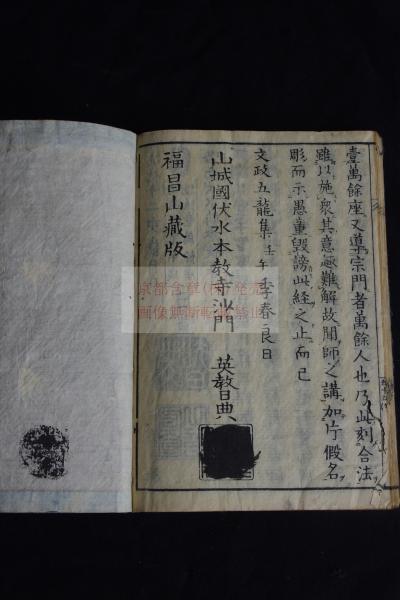 壹萬餘座又導宗門者萬餘人也乃此刻合法
雖以施衆其意趣難解故聞師之講加片假名
彫而示愚童毀謗此経之止而已
文政五龍集壬午季春良日
山城國伏水本教寺沙門 英哲日典
福昌山藏版